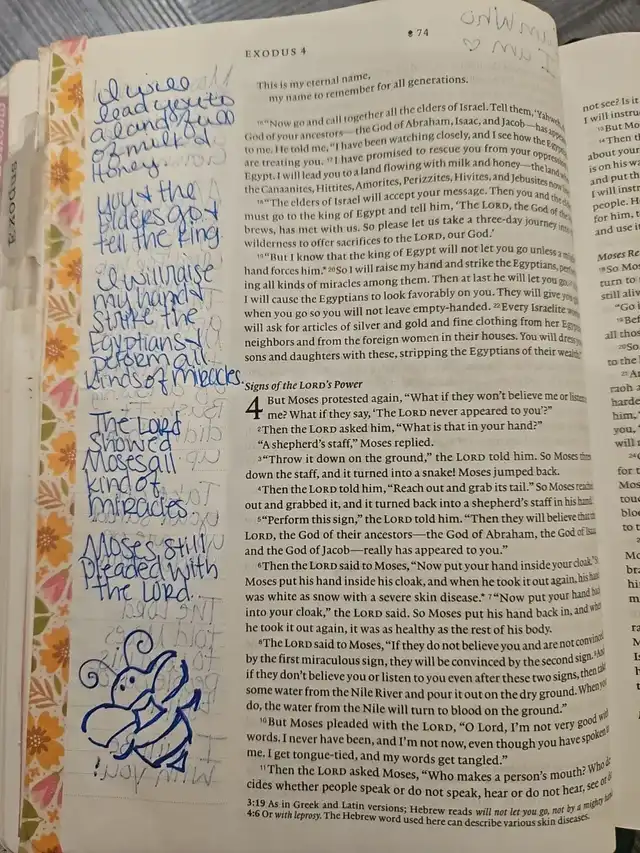 EXODUS 4
74
EXODUS
I will
lead you to
a land full
of milk &
Honey.
You & the
Elders go &
tell the king.
I will raise
my hand &
Strike the
Egyptians &
perform all
kinds of miracles.
The Lord
showed
Moses all
kind of
miracles.
Moses still
Pleaded with
the Lord.
This is my eternal name,
my name to remember for all generations.
16 “Now go and call together all the elders of Israel. Tell them, ‘Yahweh, the
God of your ancestors—the God of Abraham, Isaac, and Jacob—has
to me. He told me, “I have been watching closely, and I see how the Egyptians
are treating you. 17 I have promised to rescue you from your oppression
Egypt. I will lead you to a land flowing with milk and honey—the land
the Canaanites, Hittites, Amorites, Perizzites, Hivites, and Jebusites now
18 “The elders of Israel will accept your message. Then you and the
must go to the king of Egypt and tell him, ‘The LORD, the God of the
brews, has met with us. So please let us take a three-day journey into
wilderness to offer sacrifices to the LORD, our God.’
19 “But I know that the king of Egypt will not let you go unless a
hand forces him.* 20 So I will raise my hand and strike the Egyptians,
ing all kinds of miracles among them. Then at last he will let you go.
I will cause the Egyptians to look favorably on you. They will give you
when you go so you will not leave empty-handed. 22 Every Israelite
will ask for articles of silver and gold and fine clothing from her
neighbors and from the foreign women in their houses. You will dress
sons and daughters with these, stripping the Egyptians of their wealth
Signs of the LORD’s Power
4 But Moses protested again, “What if they won’t believe me or listen
me? What if they say, ‘The LORD never appeared to you’?”
2 Then the LORD asked him, “What is that in your hand?”
“A shepherd’s staff,” Moses replied.
3 “Throw it down on the ground,” the LORD told him. So Moses
down the staff, and it turned into a snake! Moses jumped back.
4 Then the LORD told him, “Reach out and grab its tail.” So Moses
out and grabbed it, and it turned back into a shepherd’s staff in his hand.
5 “Perform this sign,” the LORD told him. “Then they will believe that the
LORD, the God of their ancestors—the God of Abraham, the God of Isaac
and the God of Jacob—really has appeared to you.”
6 Then the LORD said to Moses, “Now put your hand inside your cloak.” So
Moses put his hand inside his cloak, and when he took it out again, his hand
was white as snow with a severe skin disease.* 7 “Now put your hand back
into your cloak,” the LORD said. So Moses put his hand back in, and when
he took it out again, it was as healthy as the rest of his body.
8 The LORD said to Moses, “If they do not believe you and are not convinced
by the first miraculous sign, they will be convinced by the second sign. 9 And
if they don’t believe you or listen to you even after these two signs, then take
some water from the Nile River and pour it out on the dry ground. When you
do, the water from the Nile will turn to blood on the ground.”
10 But Moses pleaded with the LORD, “O Lord, I’m not very good with
words. I never have been, and I’m not now, even though you have spoken to
me. I get tongue-tied, and my words get tangled.”
11 Then the LORD asked Moses, “Who makes a person’s mouth? Who
cides whether people speak or do not speak, hear or do not hear, see or
3:19 As in Greek and Latin versions; Hebrew reads will not let you go, not by a mighty
4:6 Or with leprosy. The Hebrew word used here can describe various skin diseases.
not see? Is it
I will instru
13 But Mo
14 Then t
about your
is on his wa
and put th
I will inst
people. H
for him,
and use i
Moses Re
18 So Mos
turn to
still aliv